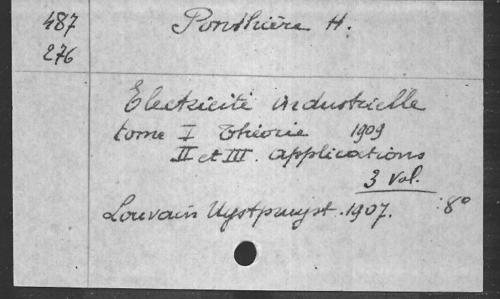 487
276
Ponthière H.
Electricité industrielle
tome I Théorie 1909
II et III. applications
3 vol.
Louvain Uystpruyst. 1907. 8°